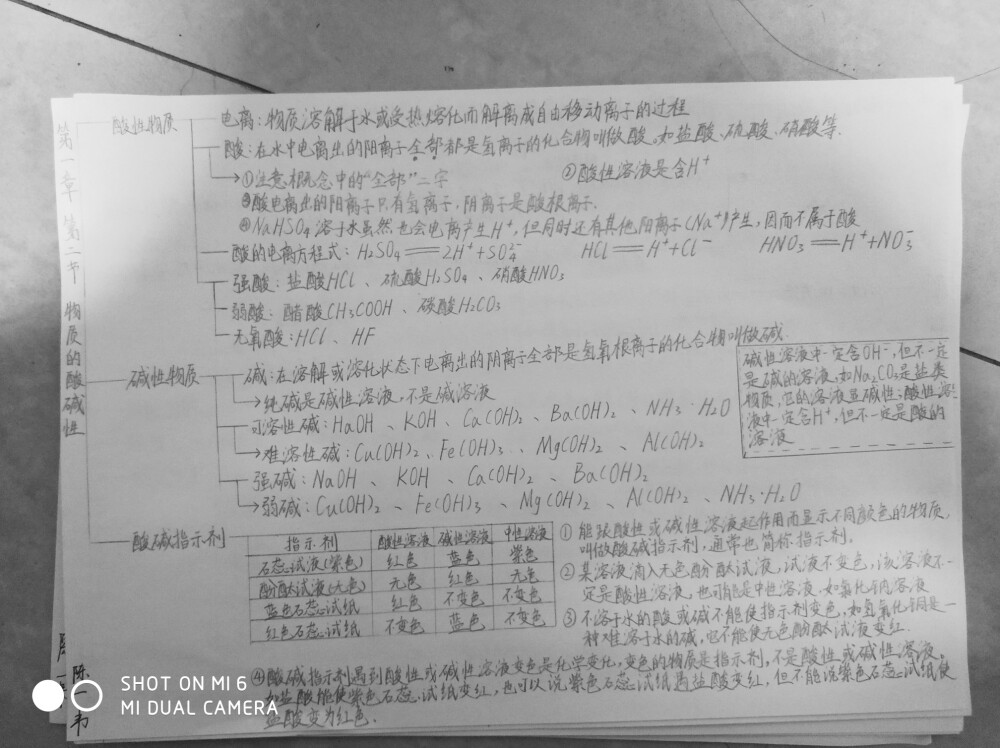 第一章 第二节 物质的酸碱性
酸性物质
电离：物质溶解于水或受热熔化而解离成自由移动离子的过程
酸：在水中电离出的阳离子全部都是氢离子的化合物叫做酸。如盐酸、硫酸、硝酸等.
①注意概念中的"全部"二字 ②酸性溶液是含H⁺
③酸电离出的阳离子只有氢离子，阴离子是酸根离子.
④NaHSO₄溶于水虽然也会电离产生H⁺，但同时还有其他阳离子(Na⁺)产生，因而不属于酸
酸的电离方程式：H₂SO₄══2H⁺+SO₄²⁻ HCl══H⁺+Cl⁻ HNO₃══H⁺+NO₃⁻
强酸：盐酸HCl、硫酸H₂SO₄、硝酸HNO₃
弱酸：醋酸CH₃COOH、碳酸H₂CO₃
无氧酸：HCl、HF
碱性物质
碱：在溶解或溶化状态下电离出的阴离子全部是氢氧根离子的化合物叫做碱.
纯碱是碱性溶液，不是碱溶液
可溶性碱：HaOH、KOH、Ca(OH)₂、Ba(OH)₂、NH₃·H₂O
难溶性碱：Cu(OH)₂、Fe(OH)₃、Mg(OH)₂、Al(OH)₂
强碱：NaOH、KOH、Ca(OH)₂、Ba(OH)₂
弱碱：Cu(OH)₂、Fe(OH)₃、Mg(OH)₂、Al(OH)₂、NH₃·H₂O
碱性溶液中一定含OH⁻，但不一定
是碱的溶液，如Na₂CO₃是盐类
物质，它的溶液显碱性；酸性溶
液中一定含H⁺，但不一定是酸的
溶液
酸碱指示剂
指示剂 酸性溶液 碱性溶液 中性溶液
石蕊试液(紫色) 红色 蓝色 紫色
酚酞试液(无色) 无色 红色 无色
蓝色石蕊试纸 红色 不变色 不变色
红色石蕊试纸 不变色 蓝色 不变色
①能跟酸性或碱性溶液起作用而显示不同颜色的物质，
叫做酸碱指示剂，通常也简称指示剂.
②某溶液滴入无色酚酞试液，试液不变色，该溶液不一
定是酸性溶液，也可能是中性溶液，如氯化钠溶液
③不溶于水的酸或碱不能使指示剂变色，如氢氧化铜是一
种难溶于水的碱，它不能使无色酚酞试液变红.
④酸碱指示剂遇到酸性或碱性溶液变色是化学变化，变色的物质是指示剂，不是酸性或碱性溶液，
如盐酸能使紫色石蕊试纸变红，也可以说紫色石蕊试纸遇盐酸变红，但不能说紫色石蕊试纸使
盐酸变为红色.
陈
SHOT ON MI 6
MI DUAL CAMERA